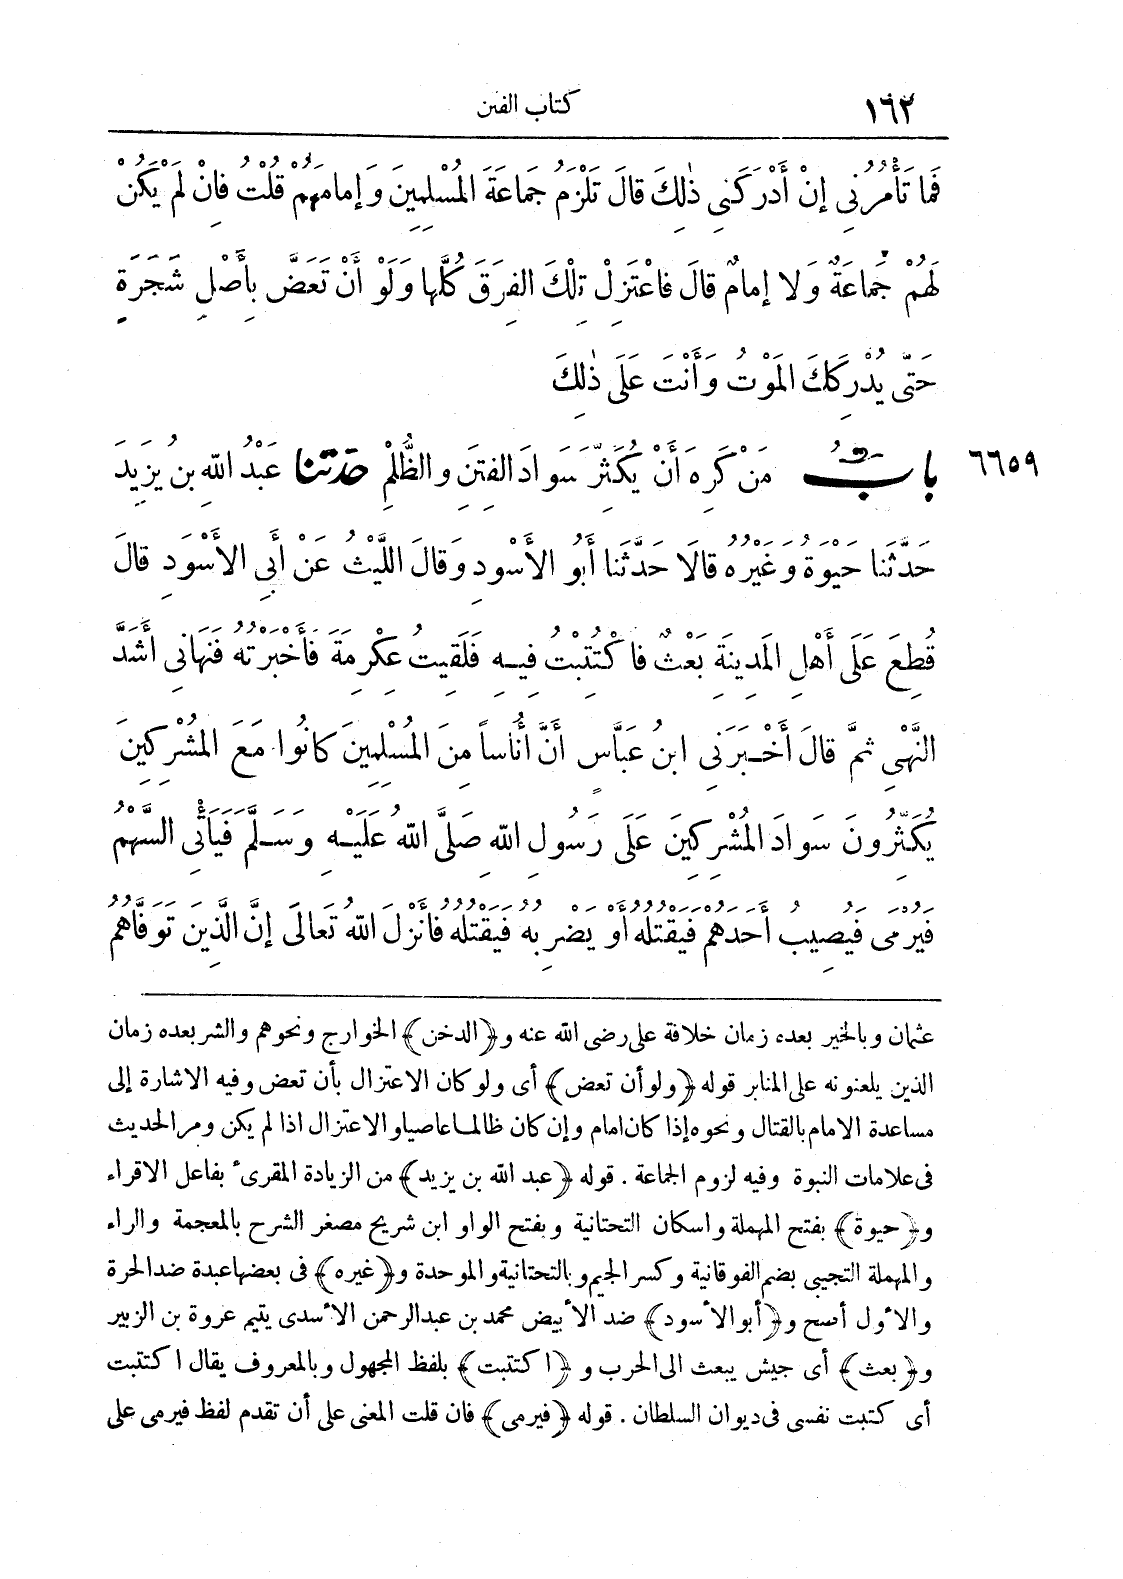 ١٦٢ كتاب الفتن
فَمَا تَأْمُرُنِي إِنْ أَدْرَكَنِي ذٰلِكَ قَالَ تَلْزَمُ جَمَاعَةَ الْمُسْلِمِينَ وَإِمَامَهُمْ قُلْتُ فَانْ لَمْ يَكُنْ
لَهُمْ جَمَاعَةٌ وَلَا إِمَامٌ قَالَ فَاعْتَزِلْ تِلْكَ الفِرَقَ كُلَّهَا وَلَوْ أَنْ تَعَضَّ بِأَصْلِ شَجَرَةٍ
حَتَّى يُدْرِكَكَ المَوْتُ وَأَنْتَ عَلَى ذٰلِكَ
٦٦٥٩ بابُ مَنْ كَرِهَ أَنْ يُكَثِّرَ سَوَادَ الفِتَنِ وَالظُّلْمِ حدّثنا عَبْدُ اللهِ بن يَزِيدَ
حَدَّثَنَا حَيْوَةُ وَغَيْرُهُ قَالَا حَدَّثَنَا أَبُو الأَسْوَدِ وَقَالَ اللَّيْثُ عَنْ أَبِي الأَسْوَدِ قَالَ
قُطِعَ عَلَى أَهْلِ المَدِينَةِ بَعْثٌ فَاكْتُتِبْتُ فِيهِ فَلَقِيتُ عِكْرِمَةَ فَأَخْبَرْتُهُ فَنَهَانِي أَشَدَّ
النَّهْيِ ثُمَّ قَالَ أَخْبَرَنِي ابنُ عَبَّاسٍ أَنَّ أُنَاساً مِنَ المُسْلِمِينَ كَانُوا مَعَ المُشْرِكِينَ
يُكَثِّرُونَ سَوَادَ المُشْرِكِينَ عَلَى رَسُولِ اللهِ صَلَّى اللهُ عَلَيْهِ وَسَلَّمَ فَيَأْتِي السَّهْمُ
فَيُرْمَى فَيُصِيبُ أَحَدَهُمْ فَيَقْتُلُهُ أَوْ يَضْرِبُهُ فَيَقْتُلُهُ فَأَنْزَلَ اللهُ تَعَالَى إِنَّ الَّذِينَ تَوَفَّاهُمُ
عثمان وبالخير بعده زمان خلافة على رضى الله عنه و﴿الدخن﴾ الخوارج ونحوهم والشر بعده زمان
الذين يلعنونه على المنابر قوله ﴿ولو أن تعض﴾ أى ولو كان الاعتزال بأن تعض وفيه الاشارة إلى
مساعدة الامام بالقتال ونحوه إذا كان امام وإن كان ظالما عاصيا والاعتزال اذا لم يكن ومر الحديث
فى علامات النبوة وفيه لزوم الجماعة . قوله ﴿عبد الله بن يزيد﴾ من الزيادة المقرىء بفاعل الاقراء
و﴿حيوة﴾ بفتح المهملة واسكان التحتانية وبفتح الواو ابن شريح مصغر الشرح بالمعجمة والراء
والمهملة التجيبى بضم الفوقانية وكسر الجيم وبالتحتانية والموحدة و﴿غيره﴾ فى بعضها عبدة ضد الحرة
والأول أصح و﴿أبو الأسود﴾ ضد الأبيض محمد بن عبد الرحمن الأسدى يتيم عروة بن الزبير
و﴿بعث﴾ أى جيش يبعث الى الحرب و ﴿اكتتبت﴾ بلفظ المجهول وبالمعروف يقال اكتتبت
أى كتبت نفسى فى ديوان السلطان . قوله ﴿فيرمى﴾ فان قلت المعنى على أن تقدم لفظ فيرمى على